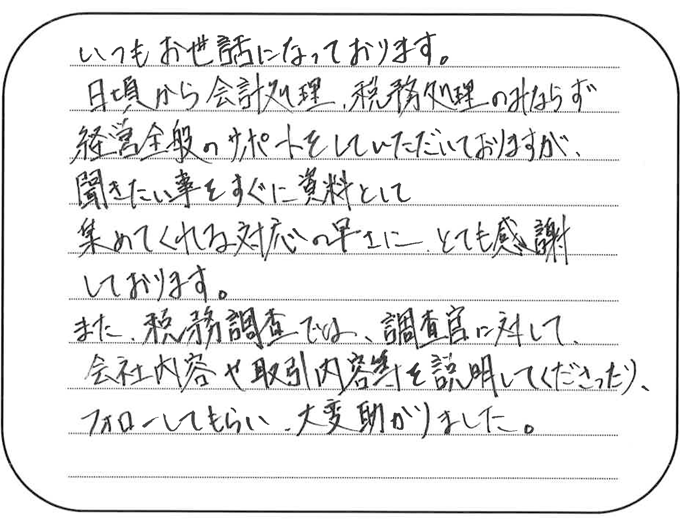 いつもお世話になっております。
日頃から会計処理、税務処理のみならず
経営全般のサポートをしていただいておりますが、
聞きたい事をすぐに資料として
集めてくれる対応の早さに、とても感謝
しております。
また、税務調査では、調査官に対して、
会社内容や取引内容等を説明してくださったり、
フォローしてもらい、大変助かりました。